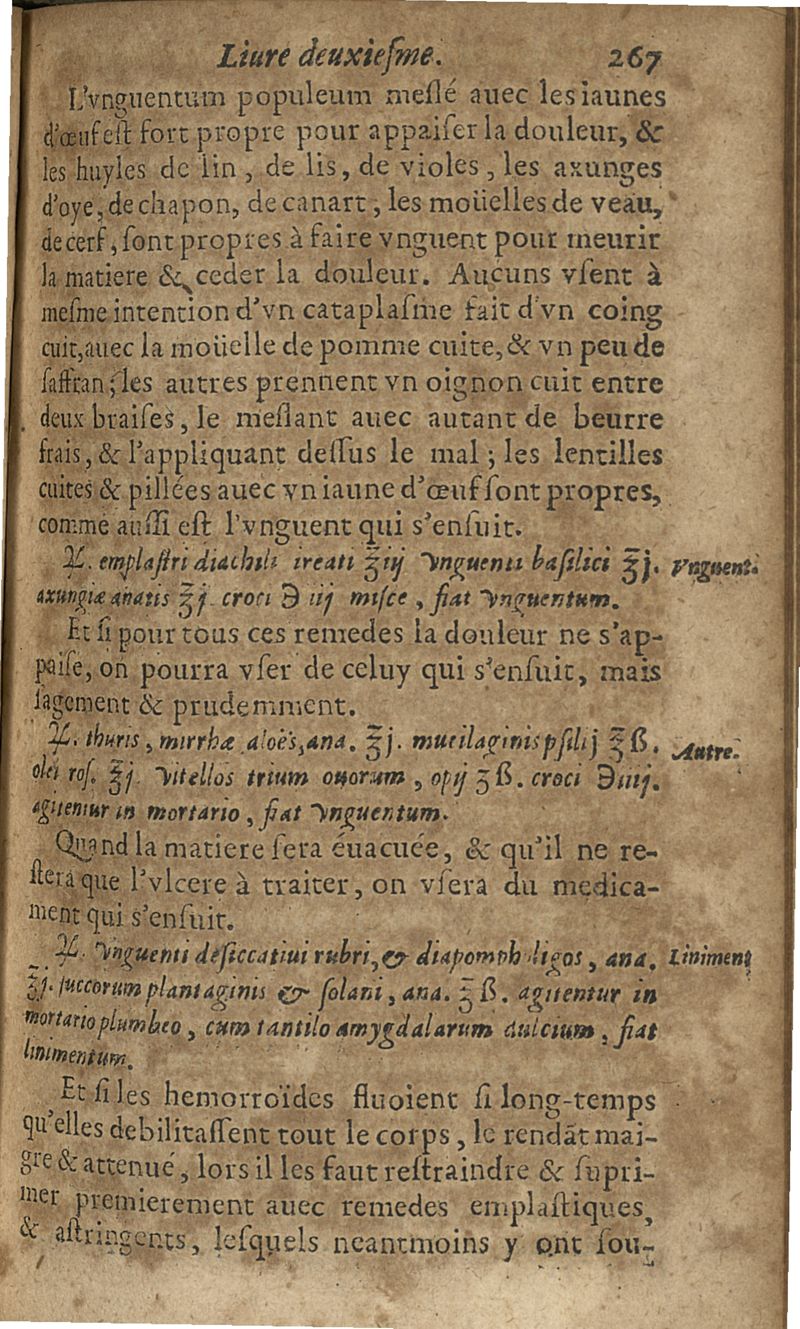 Liure deuxieſme. 267
L'vnguentum populeum meſlé auec les iaunes
d'œuf eſt fort propre pour appaiſer la douleur, &
les huyles de lin, de lis, de violes, les axunges
d'oye, de chapon, de canart, les moüelles de veau,
de cerf, ſont propres à faire vnguent pour meurir
la matiere & ceder la douleur. Aucuns vſent à
meſme intention d'vn cataplaſme fait d'vn coing
cuit, auec la moüelle de pomme cuite, & vn peu de
ſaffran; les autres prennent vn oignon cuit entre
deux braiſes, le meſlant auec autant de beurre
frais, & l'appliquant deſſus le mal; les lentilles
cuites & pillées auec vn iaune d'œuf ſont propres,
comme auſſi eſt l'vnguent qui s'enſuit.
℞. emplaſtri diachili ireati ℥iij vnguenti baſilici ℥j. Vnguent.
axungiæ anatis ℥j croci ℈ iij miſce, fiat vnguentum.
Et ſi pour tous ces remedes la douleur ne s'ap-
paiſe, on pourra vſer de celuy qui s'enſuit, mais
ſagement & prudemment.
℞. thuris, mirrhæ aloës, ana. ℥j. mucilaginis pſilij ℥ß. Autre.
olei roſ. ℥j. vitellos trium ouorum, opij ʒß. croci ℈iiij.
agitentur in mortario, fiat vnguentum.
Quand la matiere ſera éuacuée, & qu'il ne re-
ſtera que l'vlcere à traiter, on vſera du medica-
ment qui s'enſuit.
℞. vnguenti deſiccatiui rubri, & diapompholigos, ana. Liniment
℥j. ſuccorum plantaginis & ſolani, ana. ℥ ß. agitentur in
mortario plumbeo, cum tantilo amygdalarum dulcium, fiat
linimentum.
Et ſi les hemorroïdes fluoient ſi long-temps
qu'elles debilitaſſent tout le corps, le rendāt mai-
gre & attenué, lors il les faut reſtraindre & ſupri-
mer premierement auec remedes emplaſtiques,
& aſtringents, leſquels neantmoins y ont ſou-